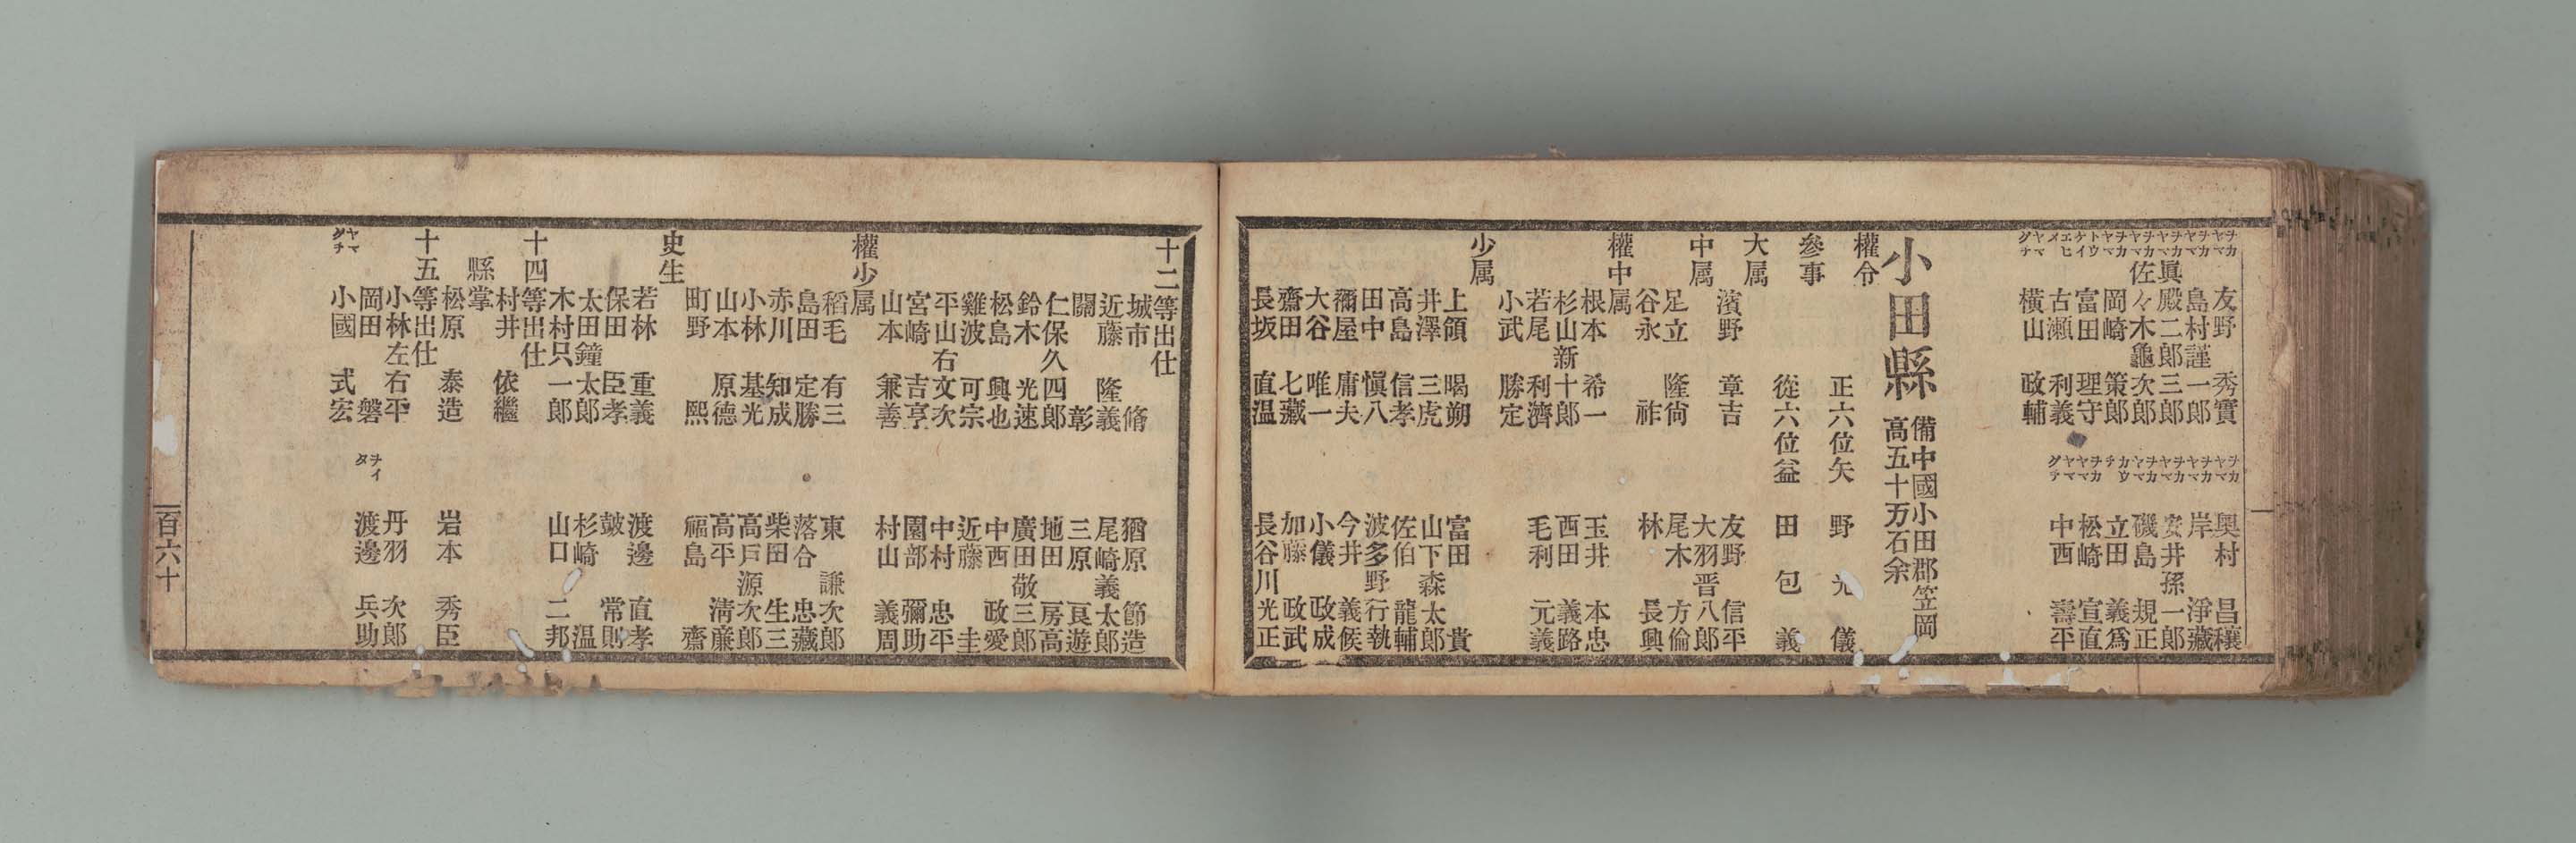 ヤマ ヲカ 友野 秀實 ヤマ ヲカ 奥村 昌穰
ヤマ ヲカ 島村謹一郎 ヤマ ヲカ 岸 淨藏
ヤマ ヲカ 眞殿二郎三郎 ヤマ ヲカ 安井孫一郎
ヤマ ヲカ 佐々木龜次郎 ヤマ ヲカ 磯島 規正
ヤマ ヲカ 岡崎 策郎 立田 義爲
ケイ トウ 富田 理守 ヤマ ヲカ 松崎 宣直
古瀬 利義 中西 壽平
ヤマ グチ 横山 政輔
小田縣 備中國小田郡笠岡
高五十万石余
權令 正六位矢野光儀
參事 從六位益田包義
大属
濱野 章吉 友野 信平
中属 大羽晋八郎
足立 隆尚 尾木 方倫
谷永 祚 林 長興
權中属
根本 希一 玉井 本忠
杉山新十郎 西田 義路
若尾 利濟 毛利 元義
小武 勝定
少属
上領 暍朔 富田 貴
井澤 三虎 山下森太郎
高島 信孝 佐伯 龍輔
田中 愼八 波多野行執
彌屋 庸夫 今井 義候
大谷 唯一 小儀 政成
齋田 七藏 加藤 政武
長坂 直温 長谷川光正
十二等出仕
城市 脩 猶原 節造
近藤 隆義 尾崎義太郎
關 彰 三原 良遊
仁保久四郎 地田 房高
鈴木 光速 廣田敬三郎
松島 興也 中西 政愛
雞波 可宗 近藤 圭
平山右文次 中村 忠平
宮崎 吉亨 園部 彌助
山本 兼善 村山 義周
權少属
稻毛 有三 東 謙次郎
島田 定勝 落合 忠藏
赤川 知成 柴田 生三
小林 基光 高戸源次郎
山本 原德 高平 淸廉
町野 熙 福島 齋
史生
若林 重義 渡邊 直孝
保田 臣孝 皷 常則
太田鐘太郎 杉崎 温
木村只一郎 山口 二邦
十四等出仕
村井 依繼
縣掌
松原 泰造 岩本 秀臣
十五等出仕
小林左右平 丹羽 次郎
岡田 磐 チイ タ 渡邊 兵助
ヤマ グチ 小國 式宏
一百六十